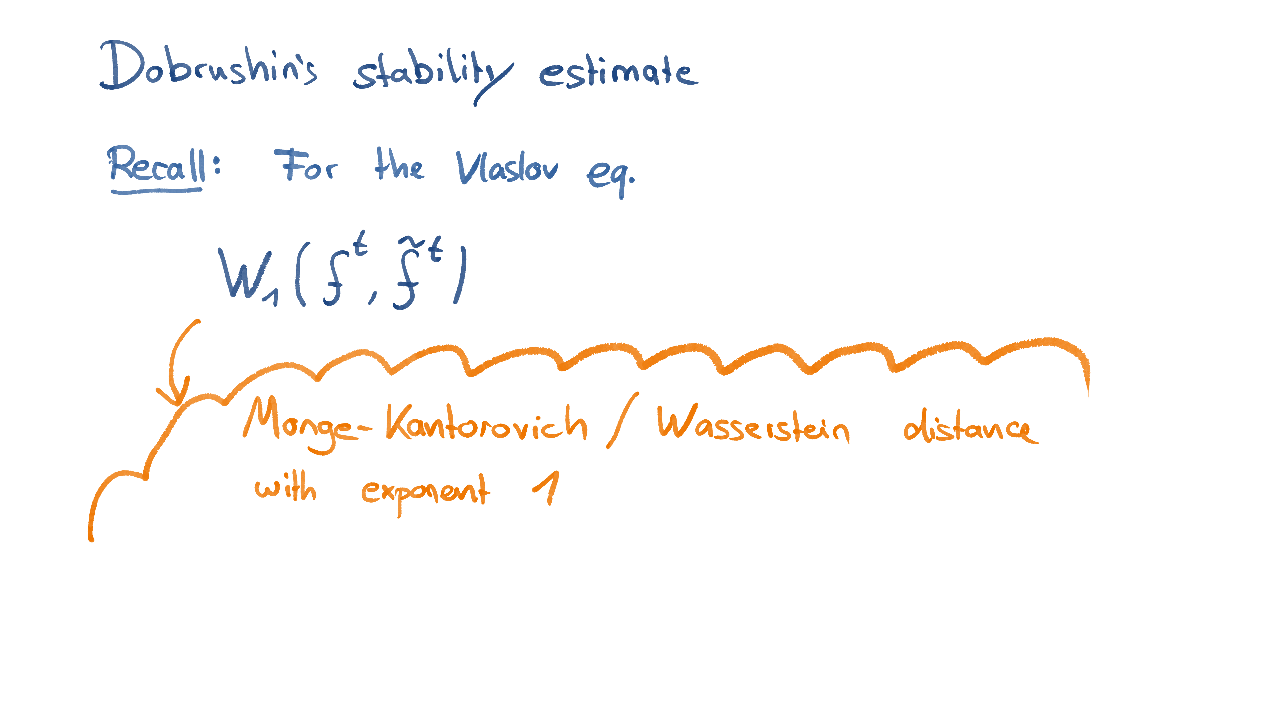 Dobrushin's stability estimate
Recall: For the Vlaslov eq.
W₁(fᵗ, f̃ᵗ)
Monge-Kantorovich / Wasserstein distance
with exponent 1